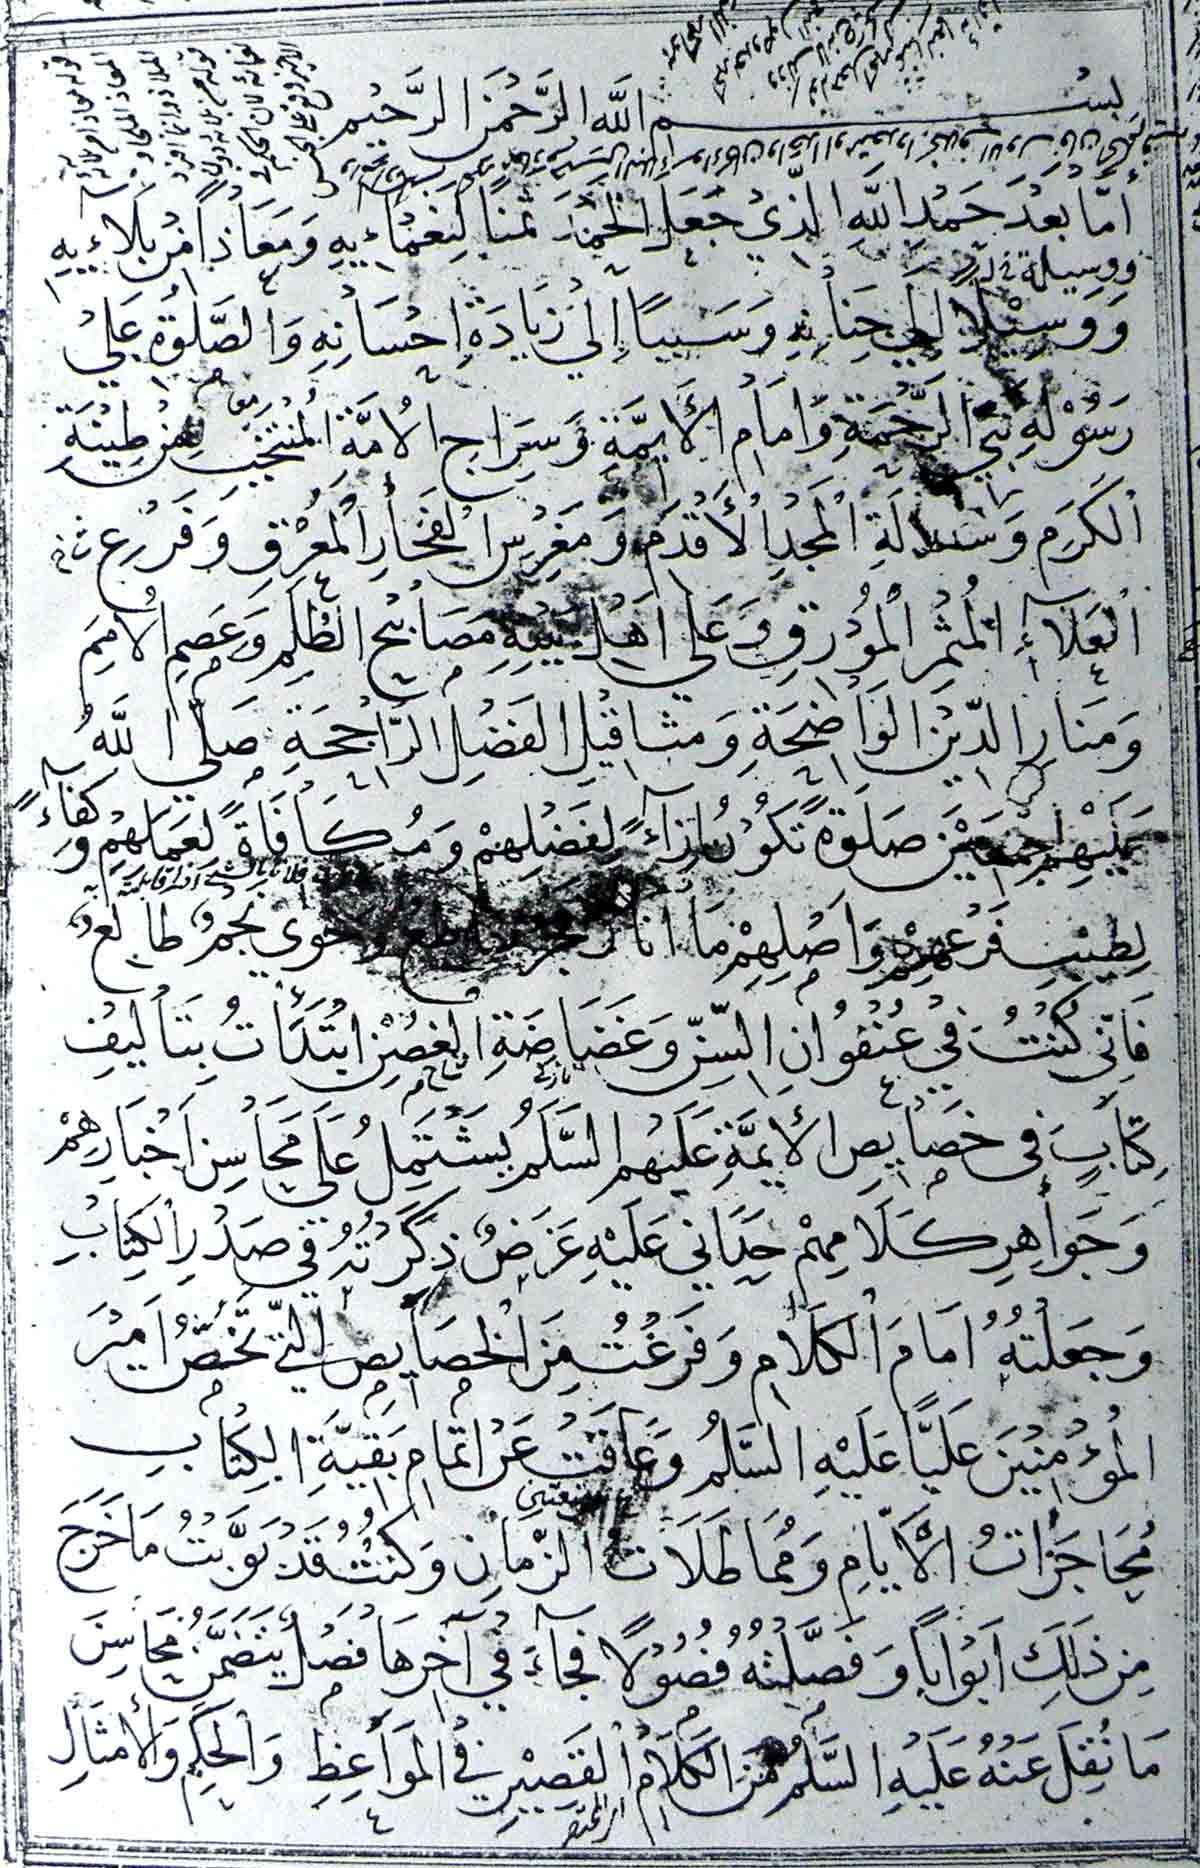 بسم الله الرحمن الرحيم
أَمَّا بَعْدَ حَمْدِ اللهِ الَّذِي جَعَلَ الْحَمْدَ ثَمَنًا لِنَعْمَائِهِ وَمَعَاذًا مِنْ بَلَائِهِ
وَوَسِيْلًا إِلَى جِنَانِهِ وَسَبَبًا إِلَى زِيَادَةِ إِحْسَانِهِ وَالصَّلٰوةِ عَلَى
رَسُوْلِهِ نَبِيِّ الرَّحْمَةِ وَإِمَامِ الْأَئِمَّةِ وَسِرَاجِ الْأُمَّةِ الْمُنْتَجَبِ مِنْ طِيْنَةِ
الْكَرَمِ وَسُلَالَةِ الْمَجْدِ الْأَقْدَمِ وَمَغْرِسِ الْفَخَارِ الْمُعْرِقِ وَفَرْعِ
الْعَلَآءِ الْمُثْمِرِ الْمُوْرِقِ وَعَلَى أَهْلِ بَيْتِهِ مَصَابِيْحِ الظُّلَمِ وَعِصَمِ الْأُمَمِ
وَمَنَارِ الدِّيْنِ الْوَاضِحَةِ وَمَثَاقِيْلِ الْفَضْلِ الرَّاجِحَةِ صَلَّى اللهُ
عَلَيْهِمْ أَجْمَعِيْنَ صَلٰوةً تَكُوْنُ إِزَآءً لِفَضْلِهِمْ وَمُكَافَاةً لِعَمَلِهِمْ وَكِفَآءً
لِطِيْبِ فَرْعِهِمْ وَأَصْلِهِمْ مَا أَنَارَ فَجْرٌ سَاطِعٌ وَخَوَى نَجْمٌ طَالِعٌ
فَإِنِّي كُنْتُ فِي عُنْفُوَانِ السِّنِّ وَغَضَاضَةِ الْغُصْنِ ابْتَدَأْتُ بِتَأْلِيْفِ
كِتَابٍ فِي خَصَايِصِ الْأَئِمَّةِ عَلَيْهِمُ السَّلَمُ يَشْتَمِلُ عَلَى مَحَاسِنِ أَخْبَارِهِمْ
وَجَوَاهِرِ كَلَامِهِمْ حَدَانِي عَلَيْهِ غَرَضٌ ذَكَرْتُهُ فِي صَدْرِ الْكِتَابِ
وَجَعَلْتُهُ أَمَامَ الْكَلَامِ وَفَرَغْتُ مِنَ الْخَصَايِصِ الَّتِي تَخُصُّ أَمِيْرَ
الْمُؤْمِنِيْنَ عَلِيًّا عَلَيْهِ السَّلَمُ وَعَاقَتْ عَنْ إِتْمَامِ بَقِيَّةِ الْكِتَابِ
مُحَاجَزَاتُ الْأَيَّامِ وَمُمَاطَلَاتُ الزَّمَانِ وَكُنْتُ قَدْ بَوَّبْتُ مَا خَرَجَ
مِنْ ذَلِكَ أَبْوَابًا وَفَصَّلْتُهُ فُصُوْلًا فَجَآءَ فِي آخِرِهَا فَصْلٌ يَتَضَمَّنُ مَحَاسِنَ
مَا نُقِلَ عَنْهُ عَلَيْهِ السَّلَمُ مِنَ الْكَلَامِ الْقَصِيْرِ فِي الْمَوَاعِظِ وَالْحِكَمِ وَالْأَمْثَالِ